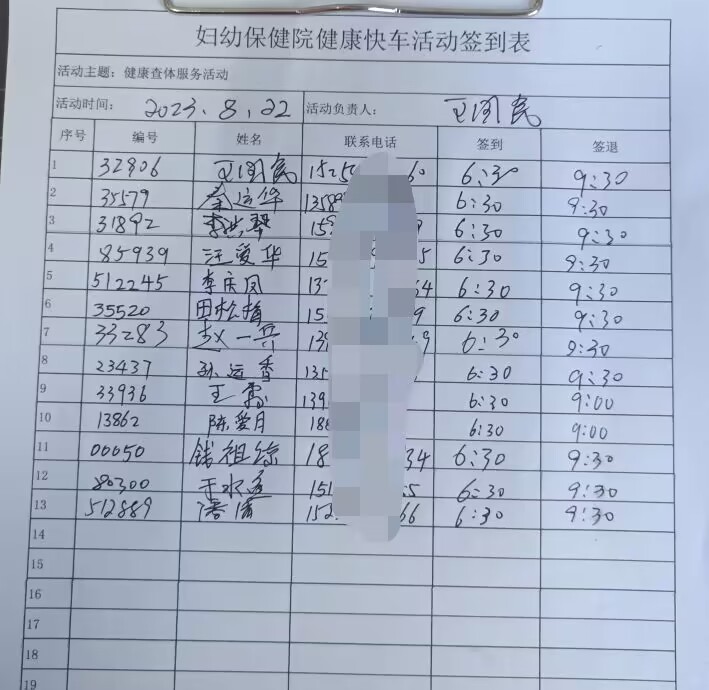 妇幼保健院健康快车活动签到表
活动主题：健康查体服务活动
活动时间： 2023.8.22 活动负责人： 王国民
序号 编号 姓名 联系电话 签到 签退
1 32906 王国民 15250 60 6:30 9:30
2 35579 秦运华 13589 6:30 9:30
3 31892 李洪琴 15 9 6:30 9:30
4 85939 汪爱华 15 5 6:30 9:30
5 512245 李庆凤 137 64 6:30 9:30
6 35520 田松梅 15 9 6:30 9:30
7 33283 赵一兵 139 9 6:30 9:30
8 23437 孙运香 135 6:30 9:30
9 33936 王 139 6:30 9:00
10 13862 陈爱月 188 6:30 9:00
11 00050 钱祖综 18 34 6:30 9:30
12 80300 于水 151 55 6:30 9:30
13 512889 潘 152 66 6:30 9:30
14
15
16
17
18
19